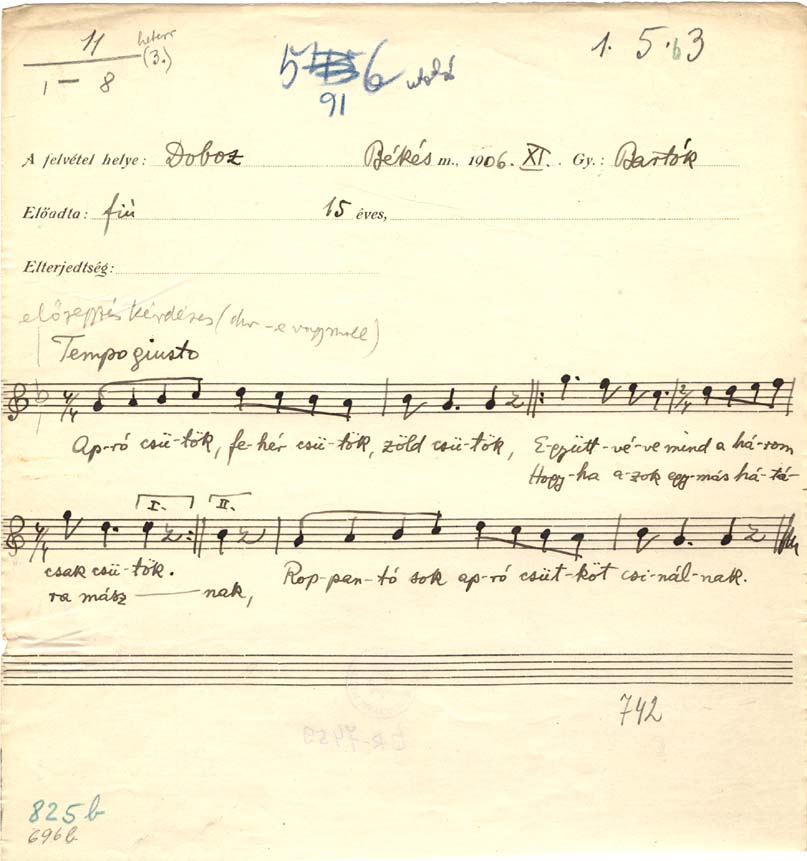 11
(3.)
1 – 8
5 6 utolsó
91
1. 5. b3
A felvétel helye: Doboz Békés m., 1906. XI. Gy.: Bartók
Előadta: fiú 15 éves,
Elterjedtség:
kérdéses (dur-e vagy moll)
Tempo giusto
4/4 2/4
Ap-ró csü-tök, fe-hér csü-tök, zöld csü-tök, Együtt-vé-ve mind a há-rom
Hogy-ha a-zok egy-más há-tá-
4/4 I. II.
csak csü-tök. Rop-pan-tó sok ap-ró csüt-köt csi-nál-nak.
ra mász — nak,
742
825b
696b